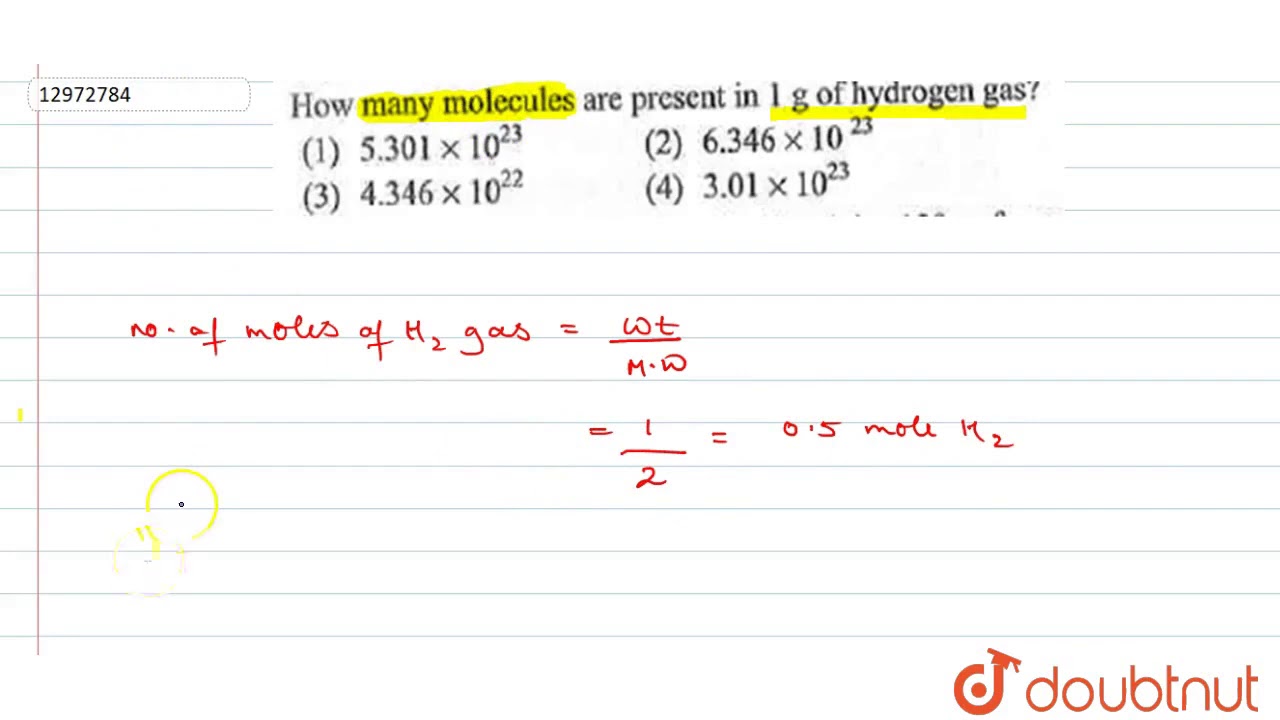 12972784
How many molecules are present in 1 g of hydrogen gas?
(1) 5.301 × 10²³ (2) 6.346 × 10 ²³
(3) 4.346 × 10²² (4) 3.01 × 10²³
no. of moles of H₂ gas = wt
M.W
= 1
2
= 0.5 mole H₂
doubtnut